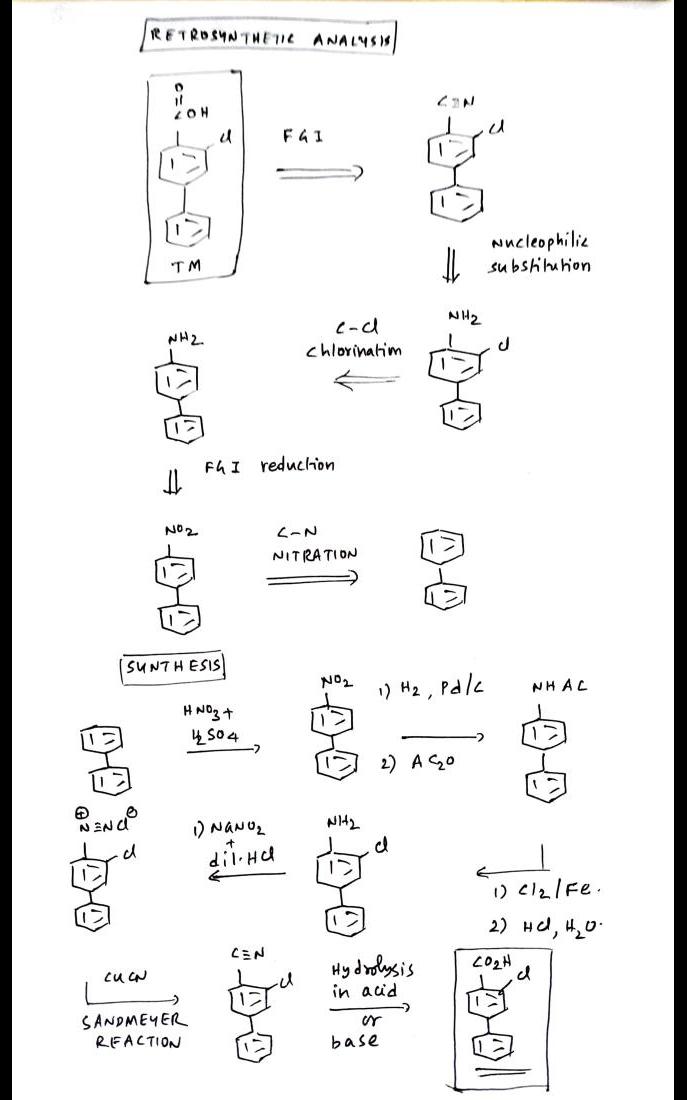 RETROSYNTHETIC ANALYSIS
O
COH
Cl
TM
FGI
C≡N
Cl
Nucleophilic
substitution
NH2
Cl
C-Cl
Chlorination
NH2
FGI reduction
NO2
C-N
NITRATION
SUNTHESIS
HNO3+
H2SO4
NO2
1) H2, Pd/C
2) AC2O
NHAC
1) Cl2/Fe.
2) HCl, H2O.
NH2
Cl
1) NaNO2
+
dil.HCl
⊕ ⊖
N≡NCl
Cl
CUCN
SANDMEYER
REACTION
C≡N
Cl
Hydrolysis
in acid
or
base
CO2H
Cl